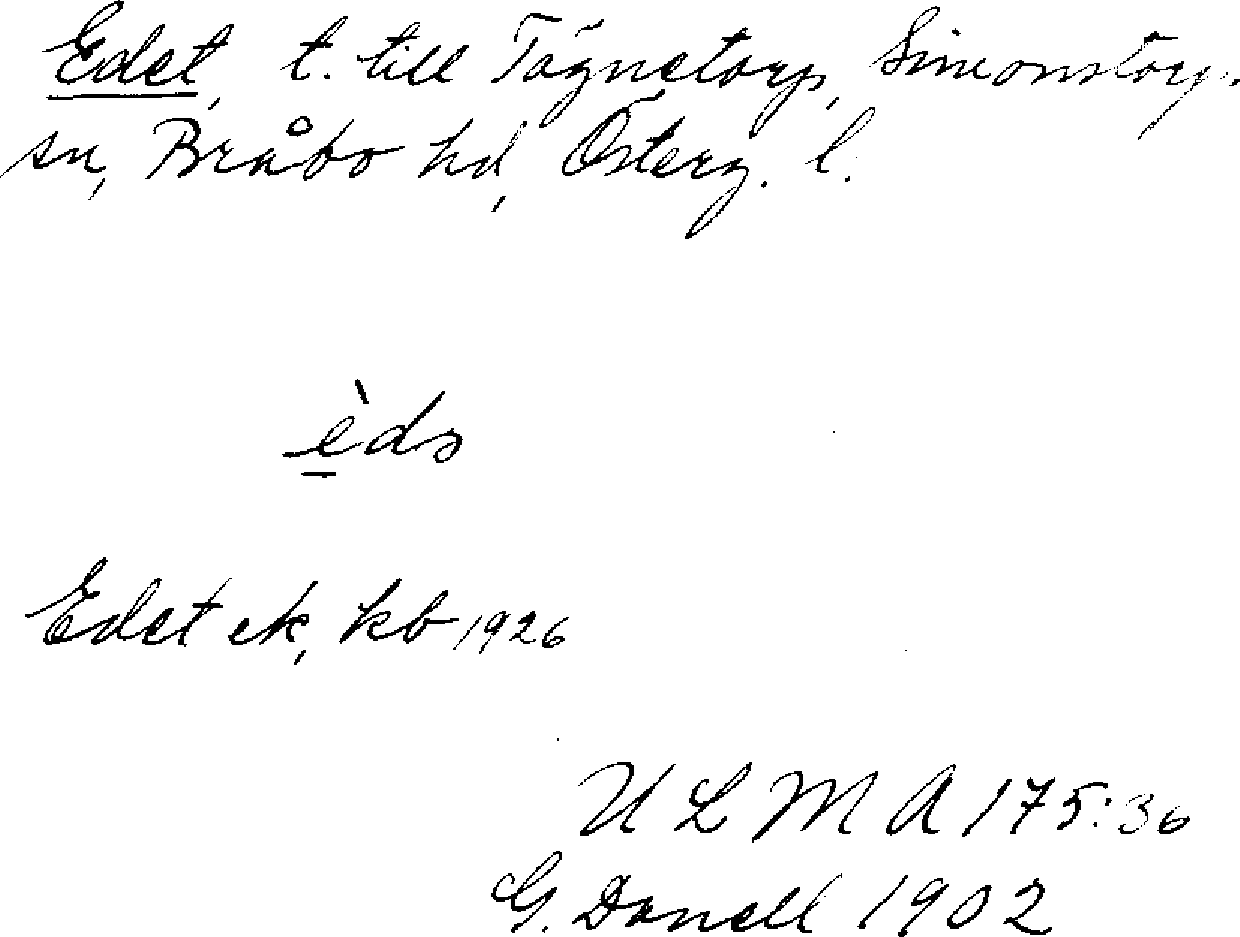 Edet, t. till Tägnetorp, Simonstorps
sn, Bråbo hd, Österg. l.
èds
Edet ek, kb 1926
ULMA 175:36
G. Danell 1902